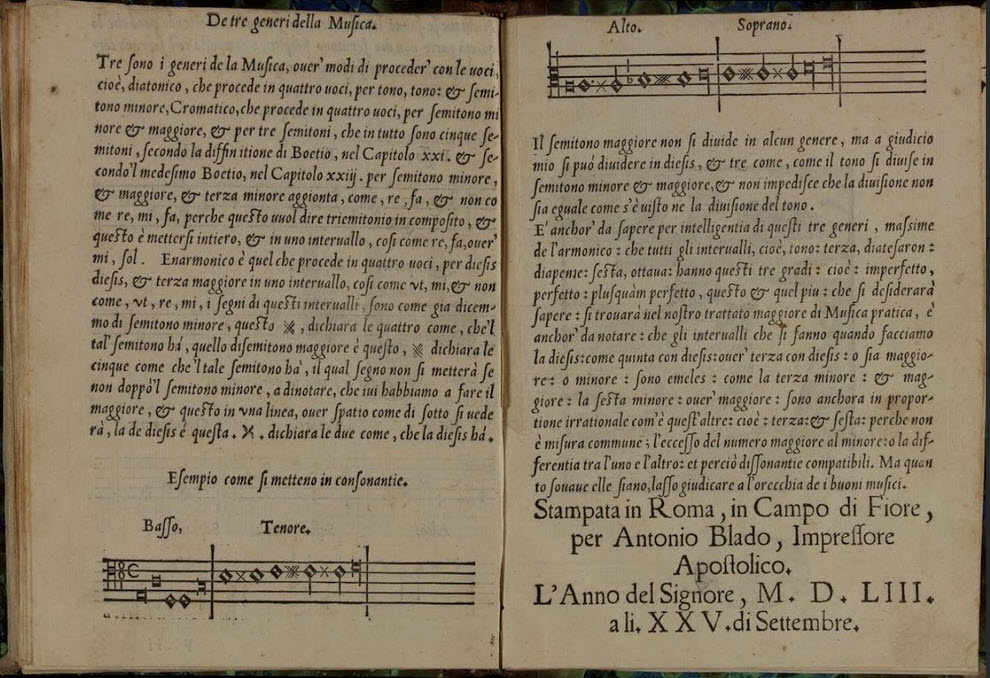 De tre generi della Musica.
Tre sono i generi de la Musica, ouer' modi di proceder' con le uoci,
cioè, diatonico, che procede in quattro uoci, per tono, tono: & semi-
tono minore, Cromatico, che procede in quattro uoci, per semitono mi
nore & maggiore, & per tre semitoni, che in tutto sono cinque se-
mitoni, secondo la diffinitione di Boetio, nel Capitolo xxi. & se-
condo'l medesimo Boetio, nel Capitolo xxiij. per semitono minore,
& maggiore, & terza minore aggionta, come, re, fa, & non co
me re, mi, fa, perche questo uuol dire triemitonio in composito, &
questo è mettersi intiero, & in uno interuallo, cosi come re, fa, ouer'
mi, sol. Enarmonico è quel che procede in quattro uoci, per diesis
diesis, & terza maggiore in uno interuallo, cosi come vt, mi, & non
come, vt, re, mi, i segni di questi interualli, sono come gia dicem-
mo di semitono minore, questo , dichiara le quattro come, che'l
tal' semitono há, quello di semitono maggiore è questo, dichiara le
cinque come che'l tale semitono há, il qual segno non si metterà se
non doppò'l semitono minore, a dinotare, che iui habbiamo a fare il
maggiore, & questo in vna linea, ouer spatio come di sotto si uede
rà, la de diesis è questa. X. dichiara le due come, che la diesis há.
Esempio come si metteno in consonantie.
Basso, Tenore.
Alto. Soprano.
Il semitono maggiore non si diuide in alcun genere, ma a giudicio
mio si può diuidere in diesis, & tre come, come il tono si diuise in
semitono minore & maggiore, & non impedisce che la diuisione non
sia eguale come s'è uisto ne la diuisione del tono.
E' anchor' da sapere per intelligentia di questi tre generi, massime
de l'armonico: che tutti gli interualli, cioè, tono: terza, diatesaron:
diapente: sesta, ottaua: hanno questi tre gradi: cioè: imperfetto,
perfetto: plusquàm perfetto, questo & quel piu: che si desiderarà
sapere: si trouarà nel nostro trattato maggiore di Musica pratica, è
anchor' da notare: che gli interualli che si fanno quando facciamo
la diesis: come quinta con diesis: ouer' terza con diesis: o sia maggio-
re: o minore: sono emeles: come la terza minore: & mag-
giore: la sesta minore: ouer' maggiore: sono anchora in propor-
tione irrationale com'è quest'altre: cioè: terza: & sesta: perche non
è misura commune; l'eccesso del numero maggiore al minore: o la dif-
ferentia tra l'uno e l'altro: et perciò dissonantie compatibili. Ma quan
to souaue elle siano, lasso giudicare a l'orecchia de i buoni musici.
Stampata in Roma, in Campo di Fiore,
per Antonio Blado, Impressore
Apostolico.
L'Anno del Signore, M. D. LIII.
a li. XXV. di Settembre.